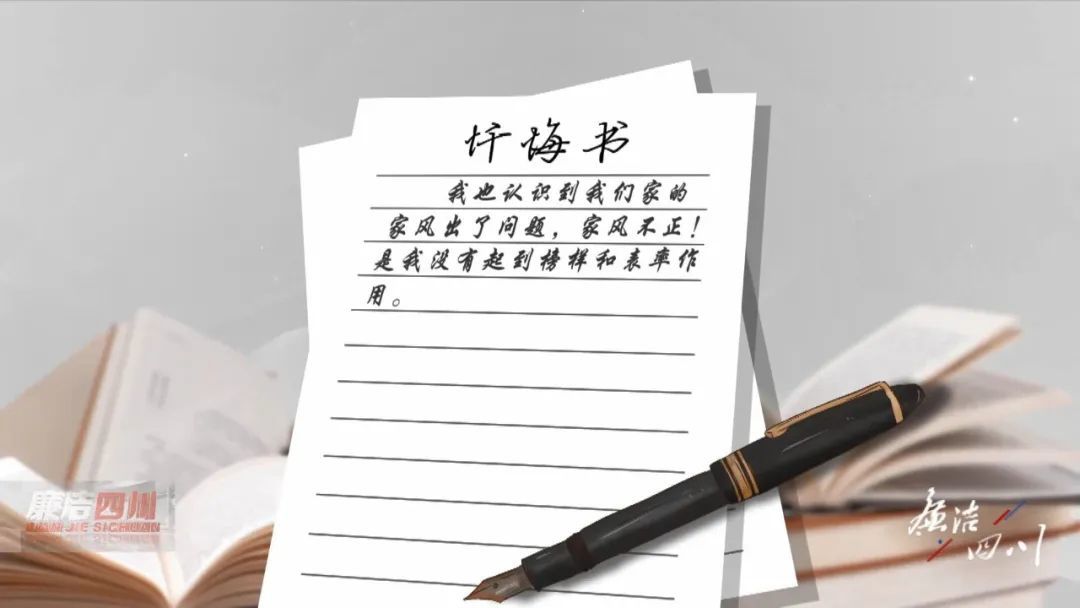 忏悔书
我也认识到我们家的
家风出了问题，家风不正！
是我没有起到榜样和表率作
用。
廉洁四川
LIAN JIE SICHUAN
廉洁
四川